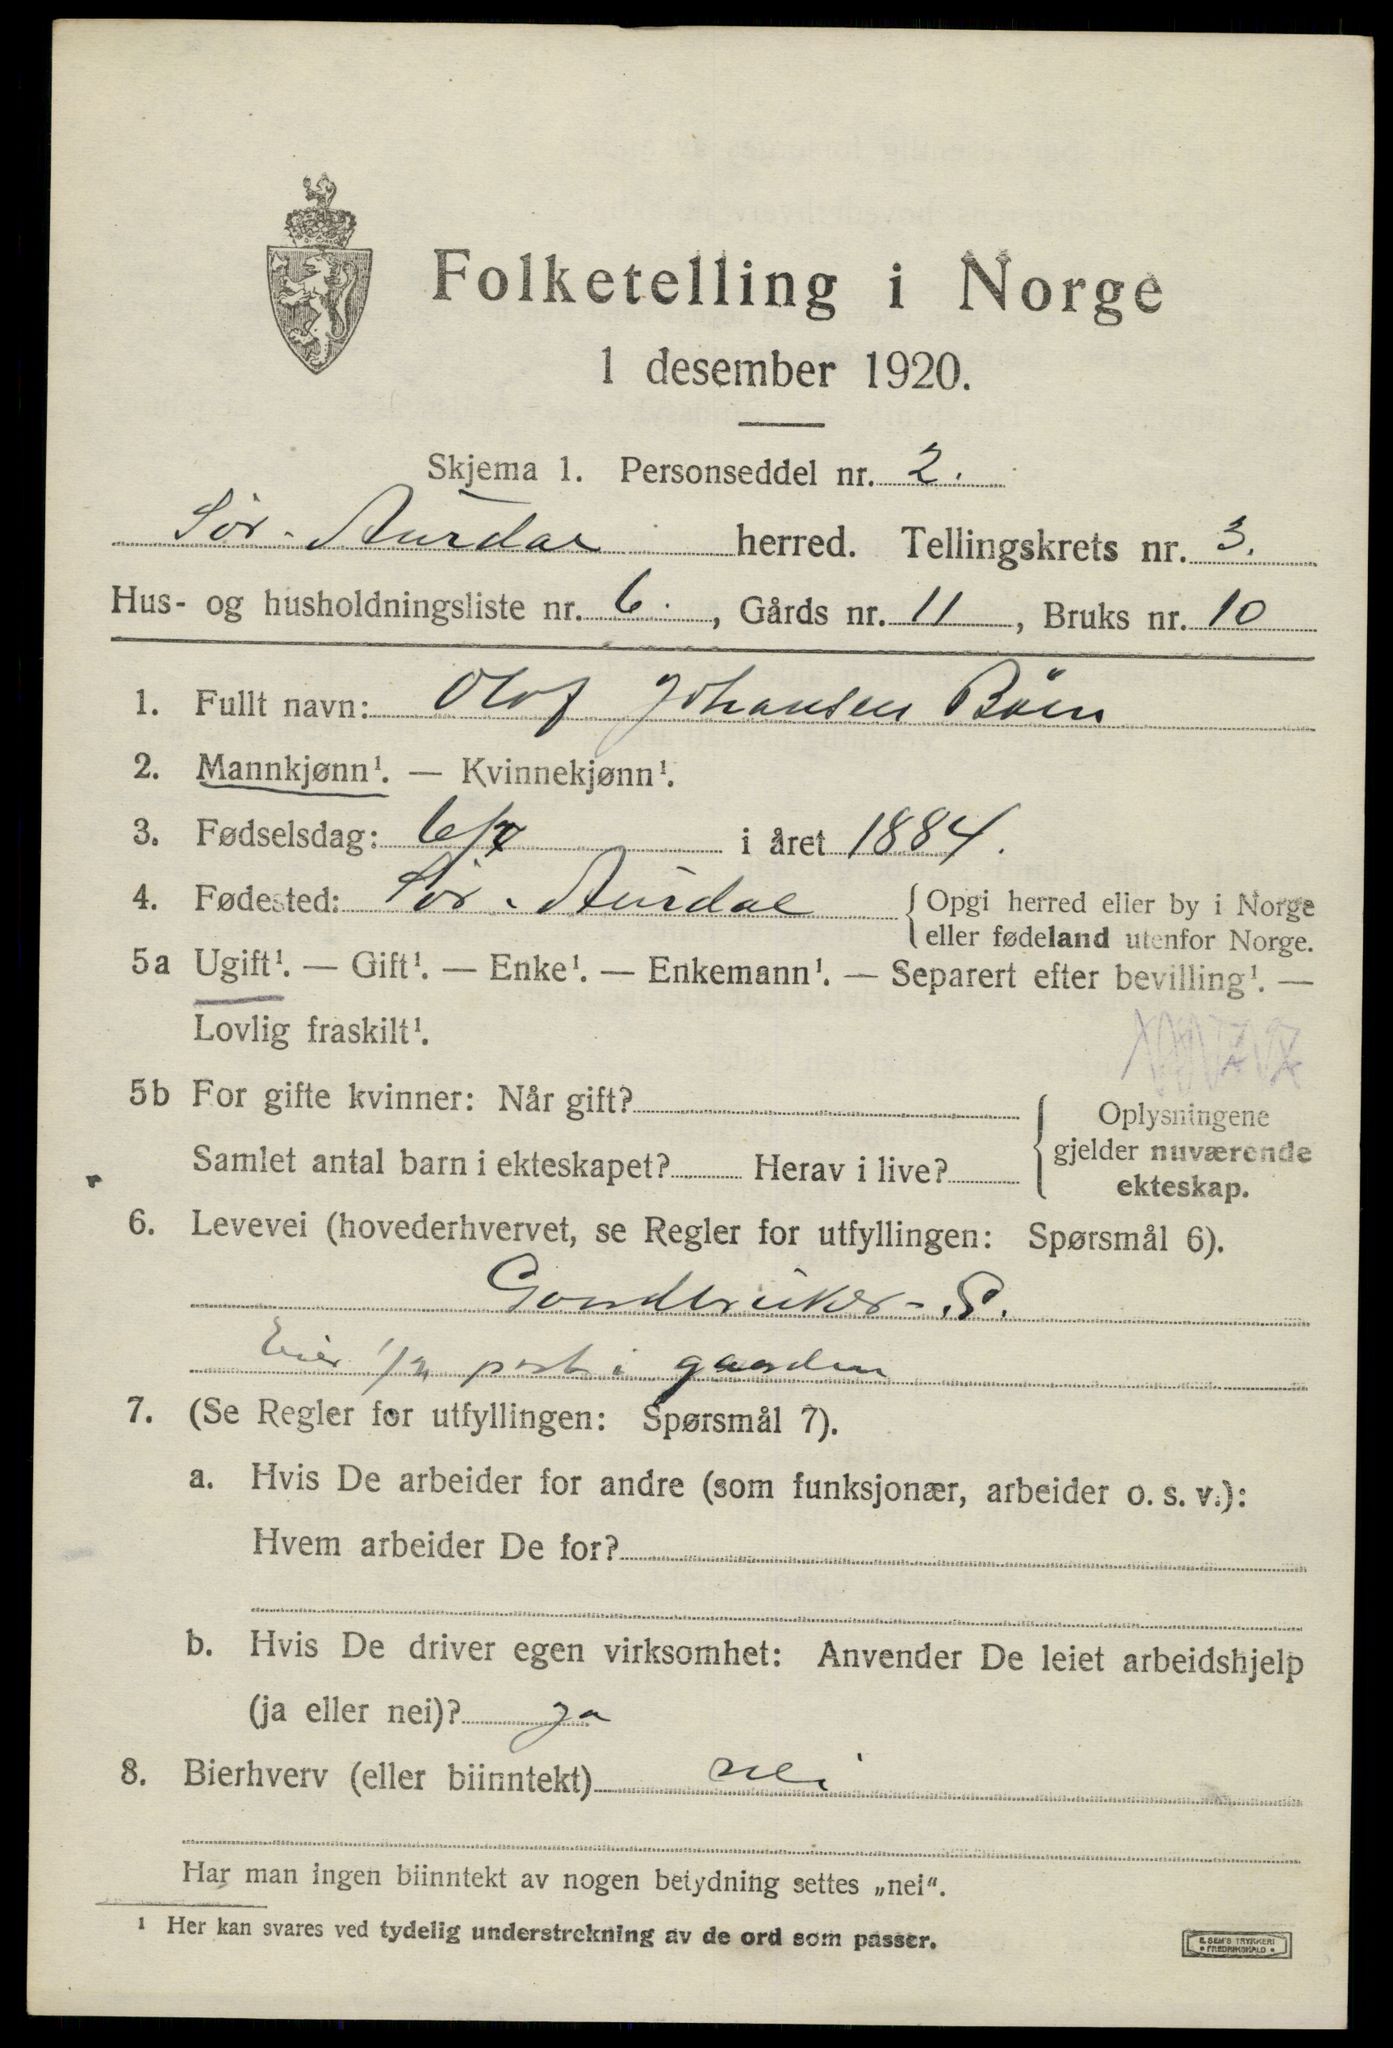 Folketelling i Norge
1 desember 1920.
Skjema 1. Personseddel nr. 2.
Sør-Aurdal herred. Tellingskrets nr. 3.
Hus- og husholdningsliste nr. 6., Gårds nr. 11, Bruks nr. 10
1. Fullt navn: Olof Johansen Bøen
2. Mannkjønn¹. — Kvinnekjønn¹.
3. Fødselsdag: 6/7 i året 1884.
4. Fødested: Sør-Aurdal { Opgi herred eller by i Norge
eller fødeland utenfor Norge.
5a Ugift¹. — Gift¹. — Enke¹. — Enkemann¹. — Separert efter bevilling¹. —
Lovlig fraskilt¹.
5b For gifte kvinner: Når gift? { Oplysningene
gjelder nuværende
Samlet antal barn i ekteskapet? Herav i live?
ekteskap.
6. Levevei (hovederhvervet, se Regler for utfyllingen: Spørsmål 6).
Gaardbruker - S.
Eier 1/2 part i gaarden
7. (Se Regler for utfyllingen: Spørsmål 7).
a. Hvis De arbeider for andre (som funksjonær, arbeider o. s. v.):
Hvem arbeider De for?
b. Hvis De driver egen virksomhet: Anvender De leiet arbeidshjelp
(ja eller nei)? ja
8. Bierhverv (eller biinntekt) nei
Har man ingen biinntekt av nogen betydning settes „nei".
¹ Her kan svares ved tydelig understrekning av de ord som passer.
E. SEM'S TRYKKERI
FREDRIKSHALD